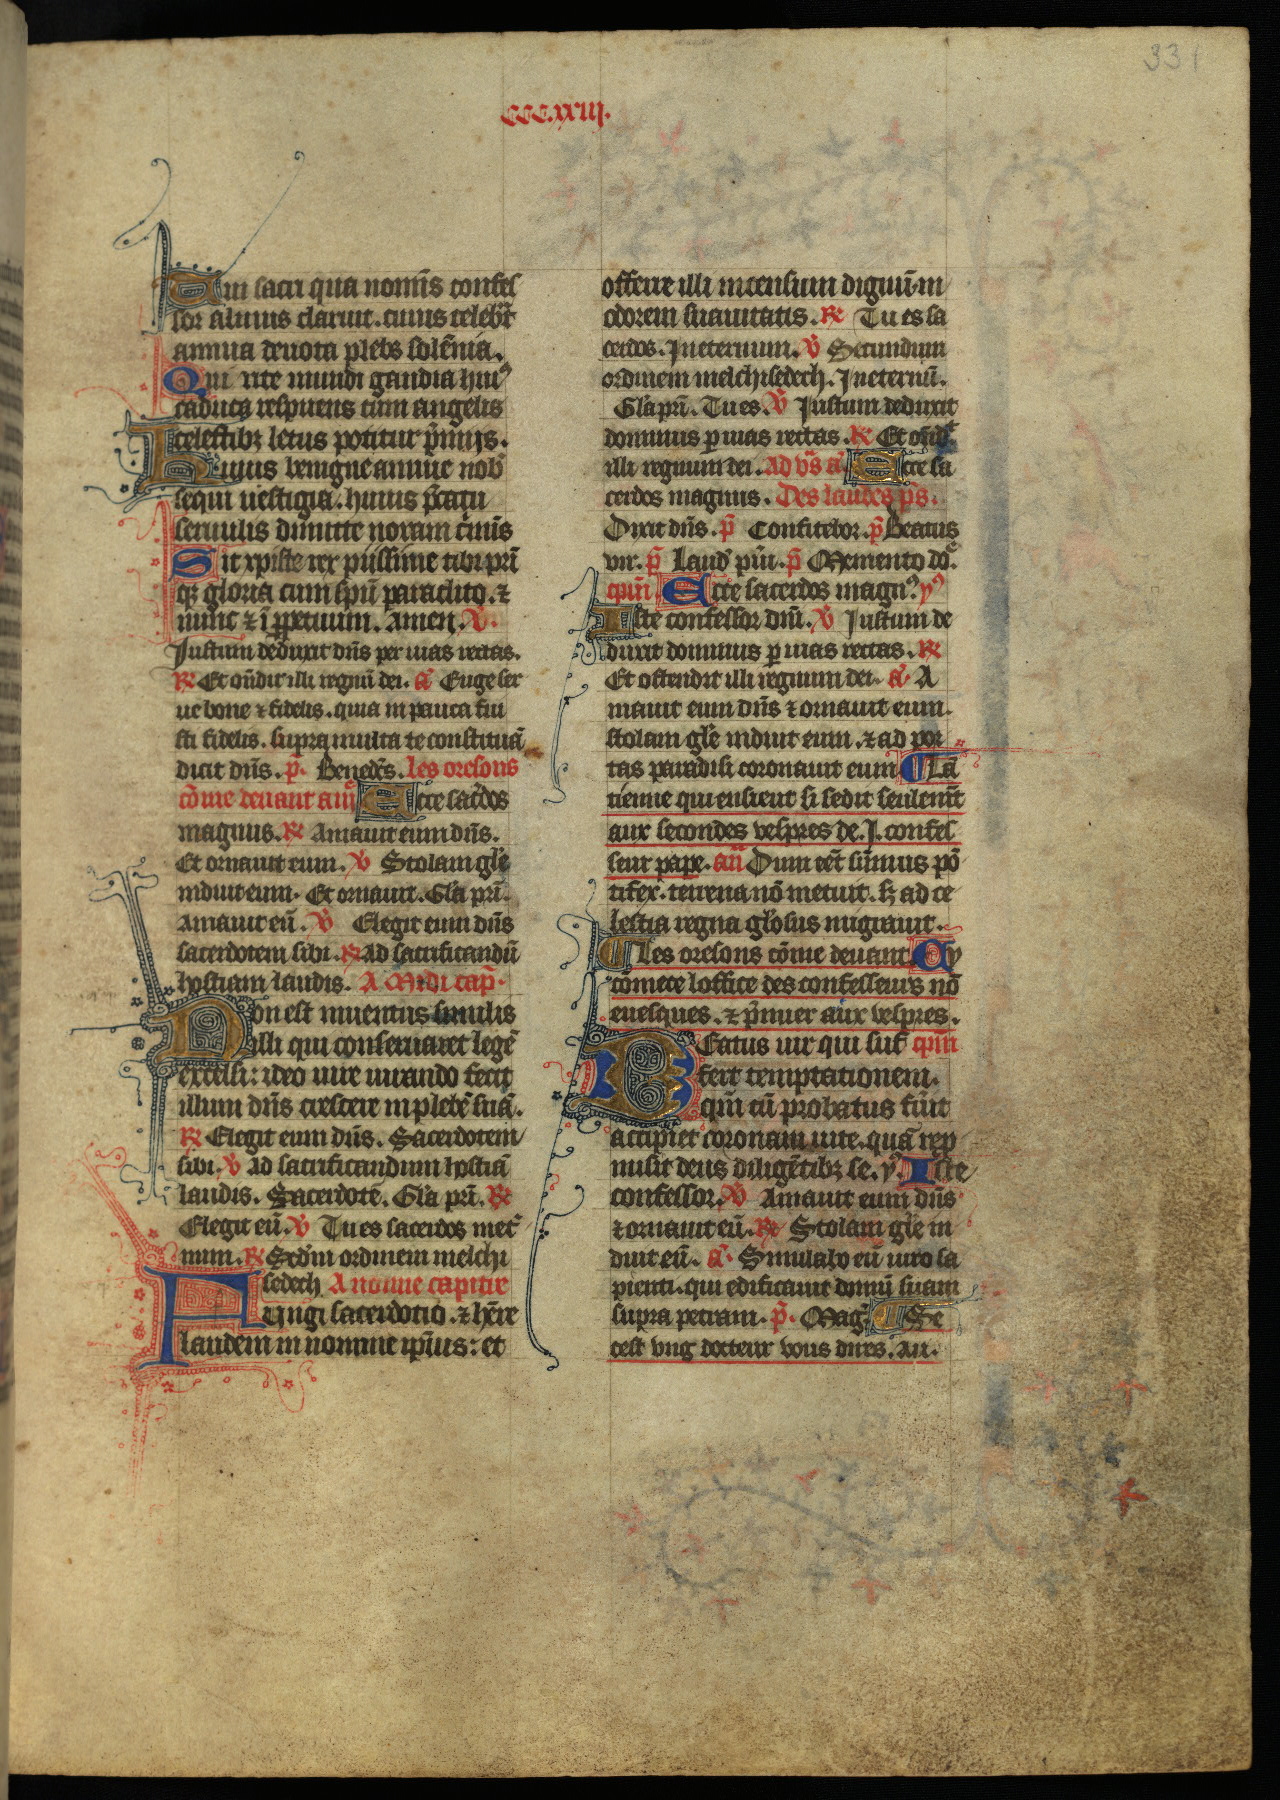 331
CCC.xxiij.
am sacri qua nomīs confes
sor almus claruit. cuius celebrat
annua deuota plebs solēnia.
Qui rite mundi gaudia huiꝰ
caducaq respuens cum angelis
celestibꝫ letus potitur p̄mijs.
Huius benigne annue nob̄
sequi uestigia. huius p̄catu
seruulis dimitte noxam c̄minis
Sit xpiste rex piissime tibi pri
qꝫ gloria cum spū paraclito. ⁊
nunc ⁊ ī ꝑpetuum. Amen. ℣.
Justum deduxit dn̄s per uias rectas.
℟ Et on̄dit illi regnū dei. a᷎ Euge ser
ue bone ⁊ fidelis. quia in pauca fui
sti fidelis. supra multa te constituā
dicit dn̄s. p̄. Bened̄s. Les oresons
cōme deuant am̄ Ecce sac̄dos
magnus. ℟ Amauit eum dn̄s.
Et ornauit eum. ℣ Stolam gl̄e
induit eum. Et ornauit. Gl̄a pri.
Amauit eū. ℣ Elegit eum dn̄s
sacerdotem sibi. ℟ Ad sacrificandū
hostiam laudis. A midi cap̄.
Non est inuentus similis
illi qui conseruaret legē
excelsi: ideo iure iurando fecit
illum dn̄s crescere in plebē suā.
℟ Elegit eum dn̄s. Sacerdotem
sibi. ℣ Ad sacrificandum hostiā
laudis. Sacerdotē. Gl̄a pri. ℟
Elegit eū. ℣ Tu es sacerdos inet̄
num. ℟ Scd̄m ordinem melchi
sedech A nonne capitre
Fungi sacerdotio. ⁊ hēre
laudem in nomine ip̄ius: et
offerre illi incensum dignū. in
odorem suauitatis. ℟ Tu es sa
cerdos. Ineternum. ℣ Secundum
ordinem melchisedech. Ineternū.
Gl̄a pri. Tu es. ℣ Justum deduxit
dominus ꝑ uias rectas. ℟ Et on̄dit
illi regnum dei. Ad v̄s a᷎ Ecce sa
cerdos magnus. Des laudes p̄s.
Dixit dn̄s. p̄ Confitebor. p̄ Beatus
vir. p̄ Laud̄ pūi. p̄ Memento dn̄e.
cpiīn Ecce sacerdos magnꝰ. yꝰ
Iste confessor dni. ℣ Justum de
duxit dominus ꝑ uias rectas. ℟
Et ostendit illi regnum dei. a᷎. A
mauit eum dn̄s ⁊ ornauit eum.
stolam gl̄e induit eum. ⁊ ad por
tas paradisi coronauit eum ¶ La
tienne qui ensieut si sedit seulemt̄
aux secondes vespres de .j. confes
seur pape. an̄ Dum eēt sūmus pō
tifex. terrena nō metuit. sꝫ ad ce
lestia regna gl̄osus migrauit.
¶ Les oresons cōme deuant. Cy
cōmēce loffice des confesseurs nō
euesques. ⁊ p̄mier aux vespres.
Beatus uir qui suf cpiīn
fert temptationem.
qm̄ cū probatus fūit
accipiet coronam uite. quā rep
misit deus diligētibꝫ se. yꝰ Iste
confessor. ℣ Amauit eum dn̄s
⁊ ornauit eū. ℟ Stolam gl̄e in
duit eū. a᷎. Similabo eū uiro sa
pienti. qui edificauit domū suam
supra petram. p̄. Mag̃. ¶ Se
cest vng docteur vous dires. an̄.